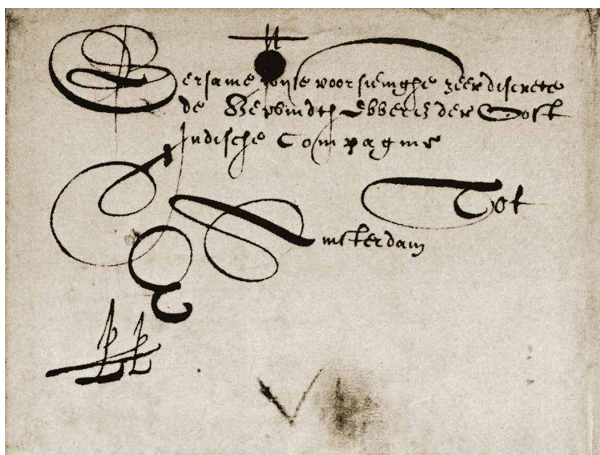 Eersame wijse voorsieninghe zeer discrete
de Bewindt Ebberes der Oost
Indische Compagnie
Tot
Amsterdam